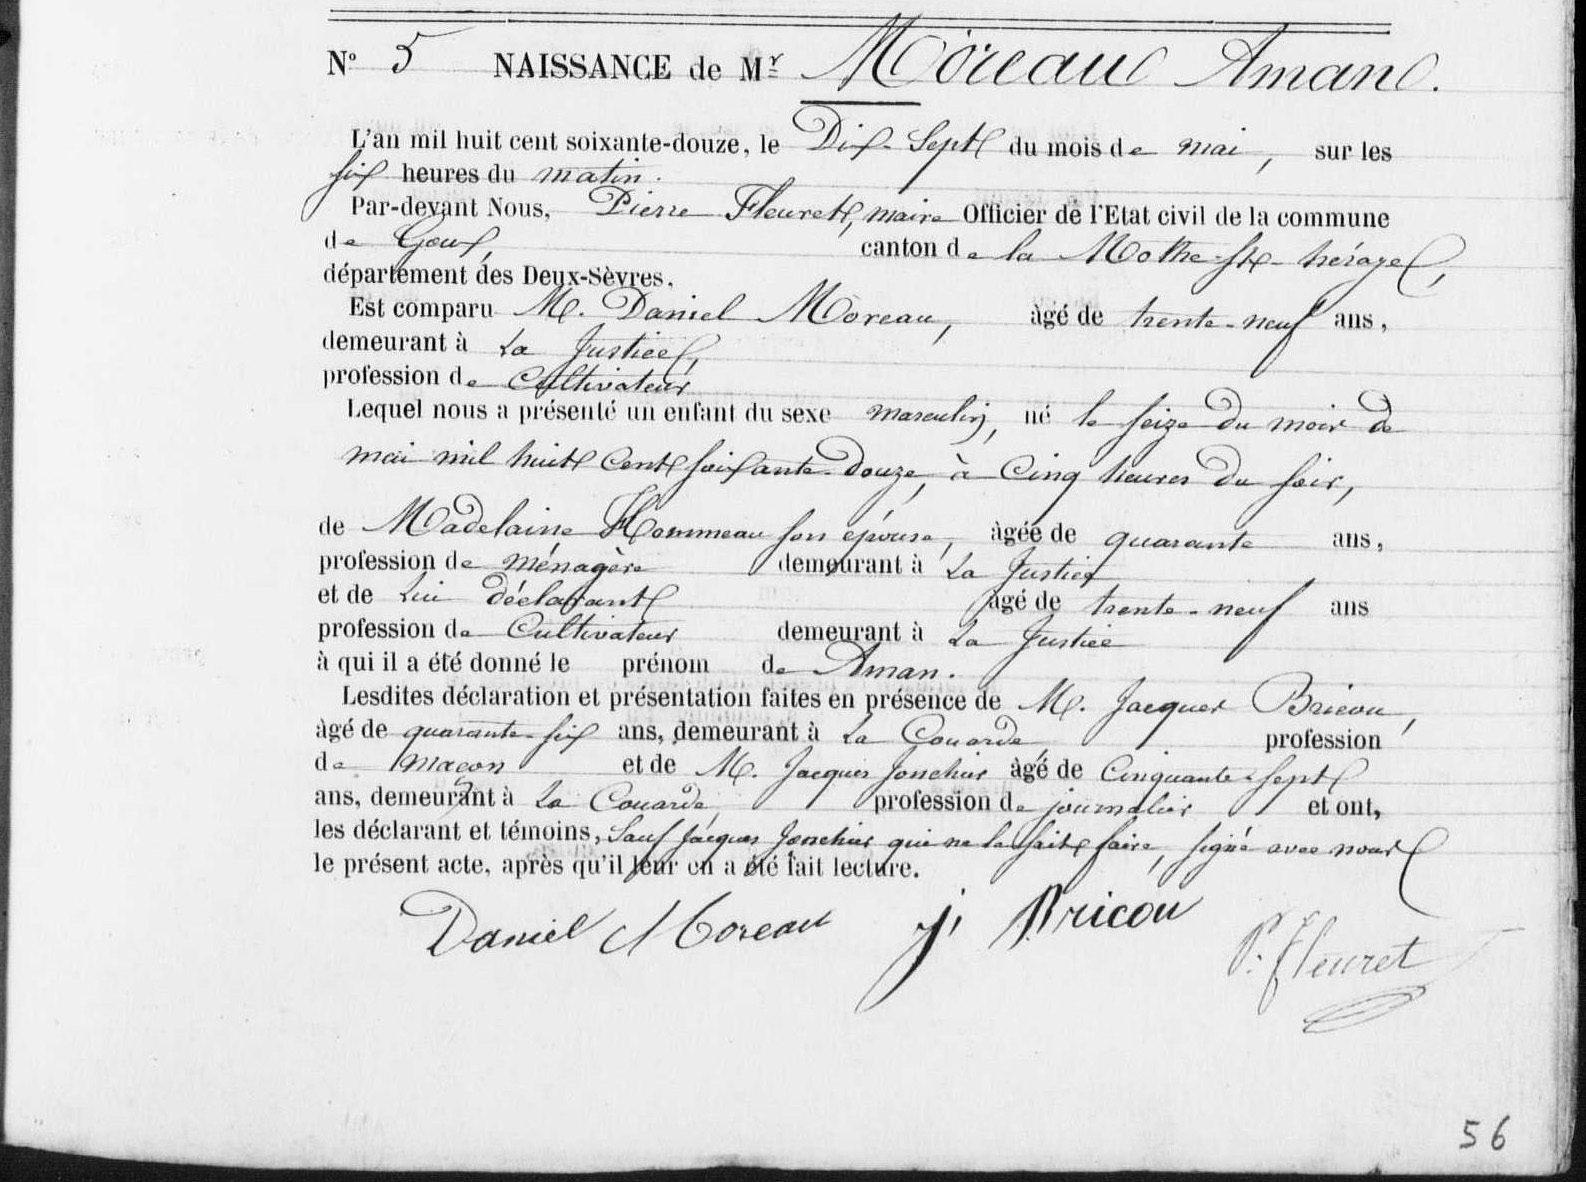 N° 5 NAISSANCE de Mr Moreau Aman.
L'an mil huit cent soixante-douze, le Dix-Sept du mois de mai, sur les
six heures du matin.
Par-devant Nous, Pierre Fleuret, maire Officier de l'Etat civil de la commune
de Goux, canton de la Mothe-St-héraye,
département des Deux-Sèvres.
Est comparu M. Daniel Moreau, àgé de trente-neuf ans,
demeurant à La Justice,
profession de Cultivateur
Lequel nous a présenté un enfant du sexe masculin, né le seize du mois de
mai mil huit cent soixante-douze, à cinq heures du soir,
de Madelaine Hommeau son épouse, àgée de quarante ans,
profession de ménagère demeurant à La Justice
et de Lui déclarant àgé de trente-neuf ans
profession de Cultivateur demeurant à La Justice
à qui il a été donné le prénom de Aman.
Lesdites déclaration et présentation faites en présence de M. Jacques Bricou,
àgé de quarante-six ans, demeurant à La Couarde profession
de maçon et de M. Jacques Jonchier àgé de Cinquante-sept
ans, demeurant à La Couarde, profession de journalier et ont,
les déclarant et témoins, Sauf Jacques Jonchier qui ne le sait faire, signé avec nous
le présent acte, après qu'il leur en a été fait lecture.
Daniel Moreau j. Bricou
P. Fleuret
56